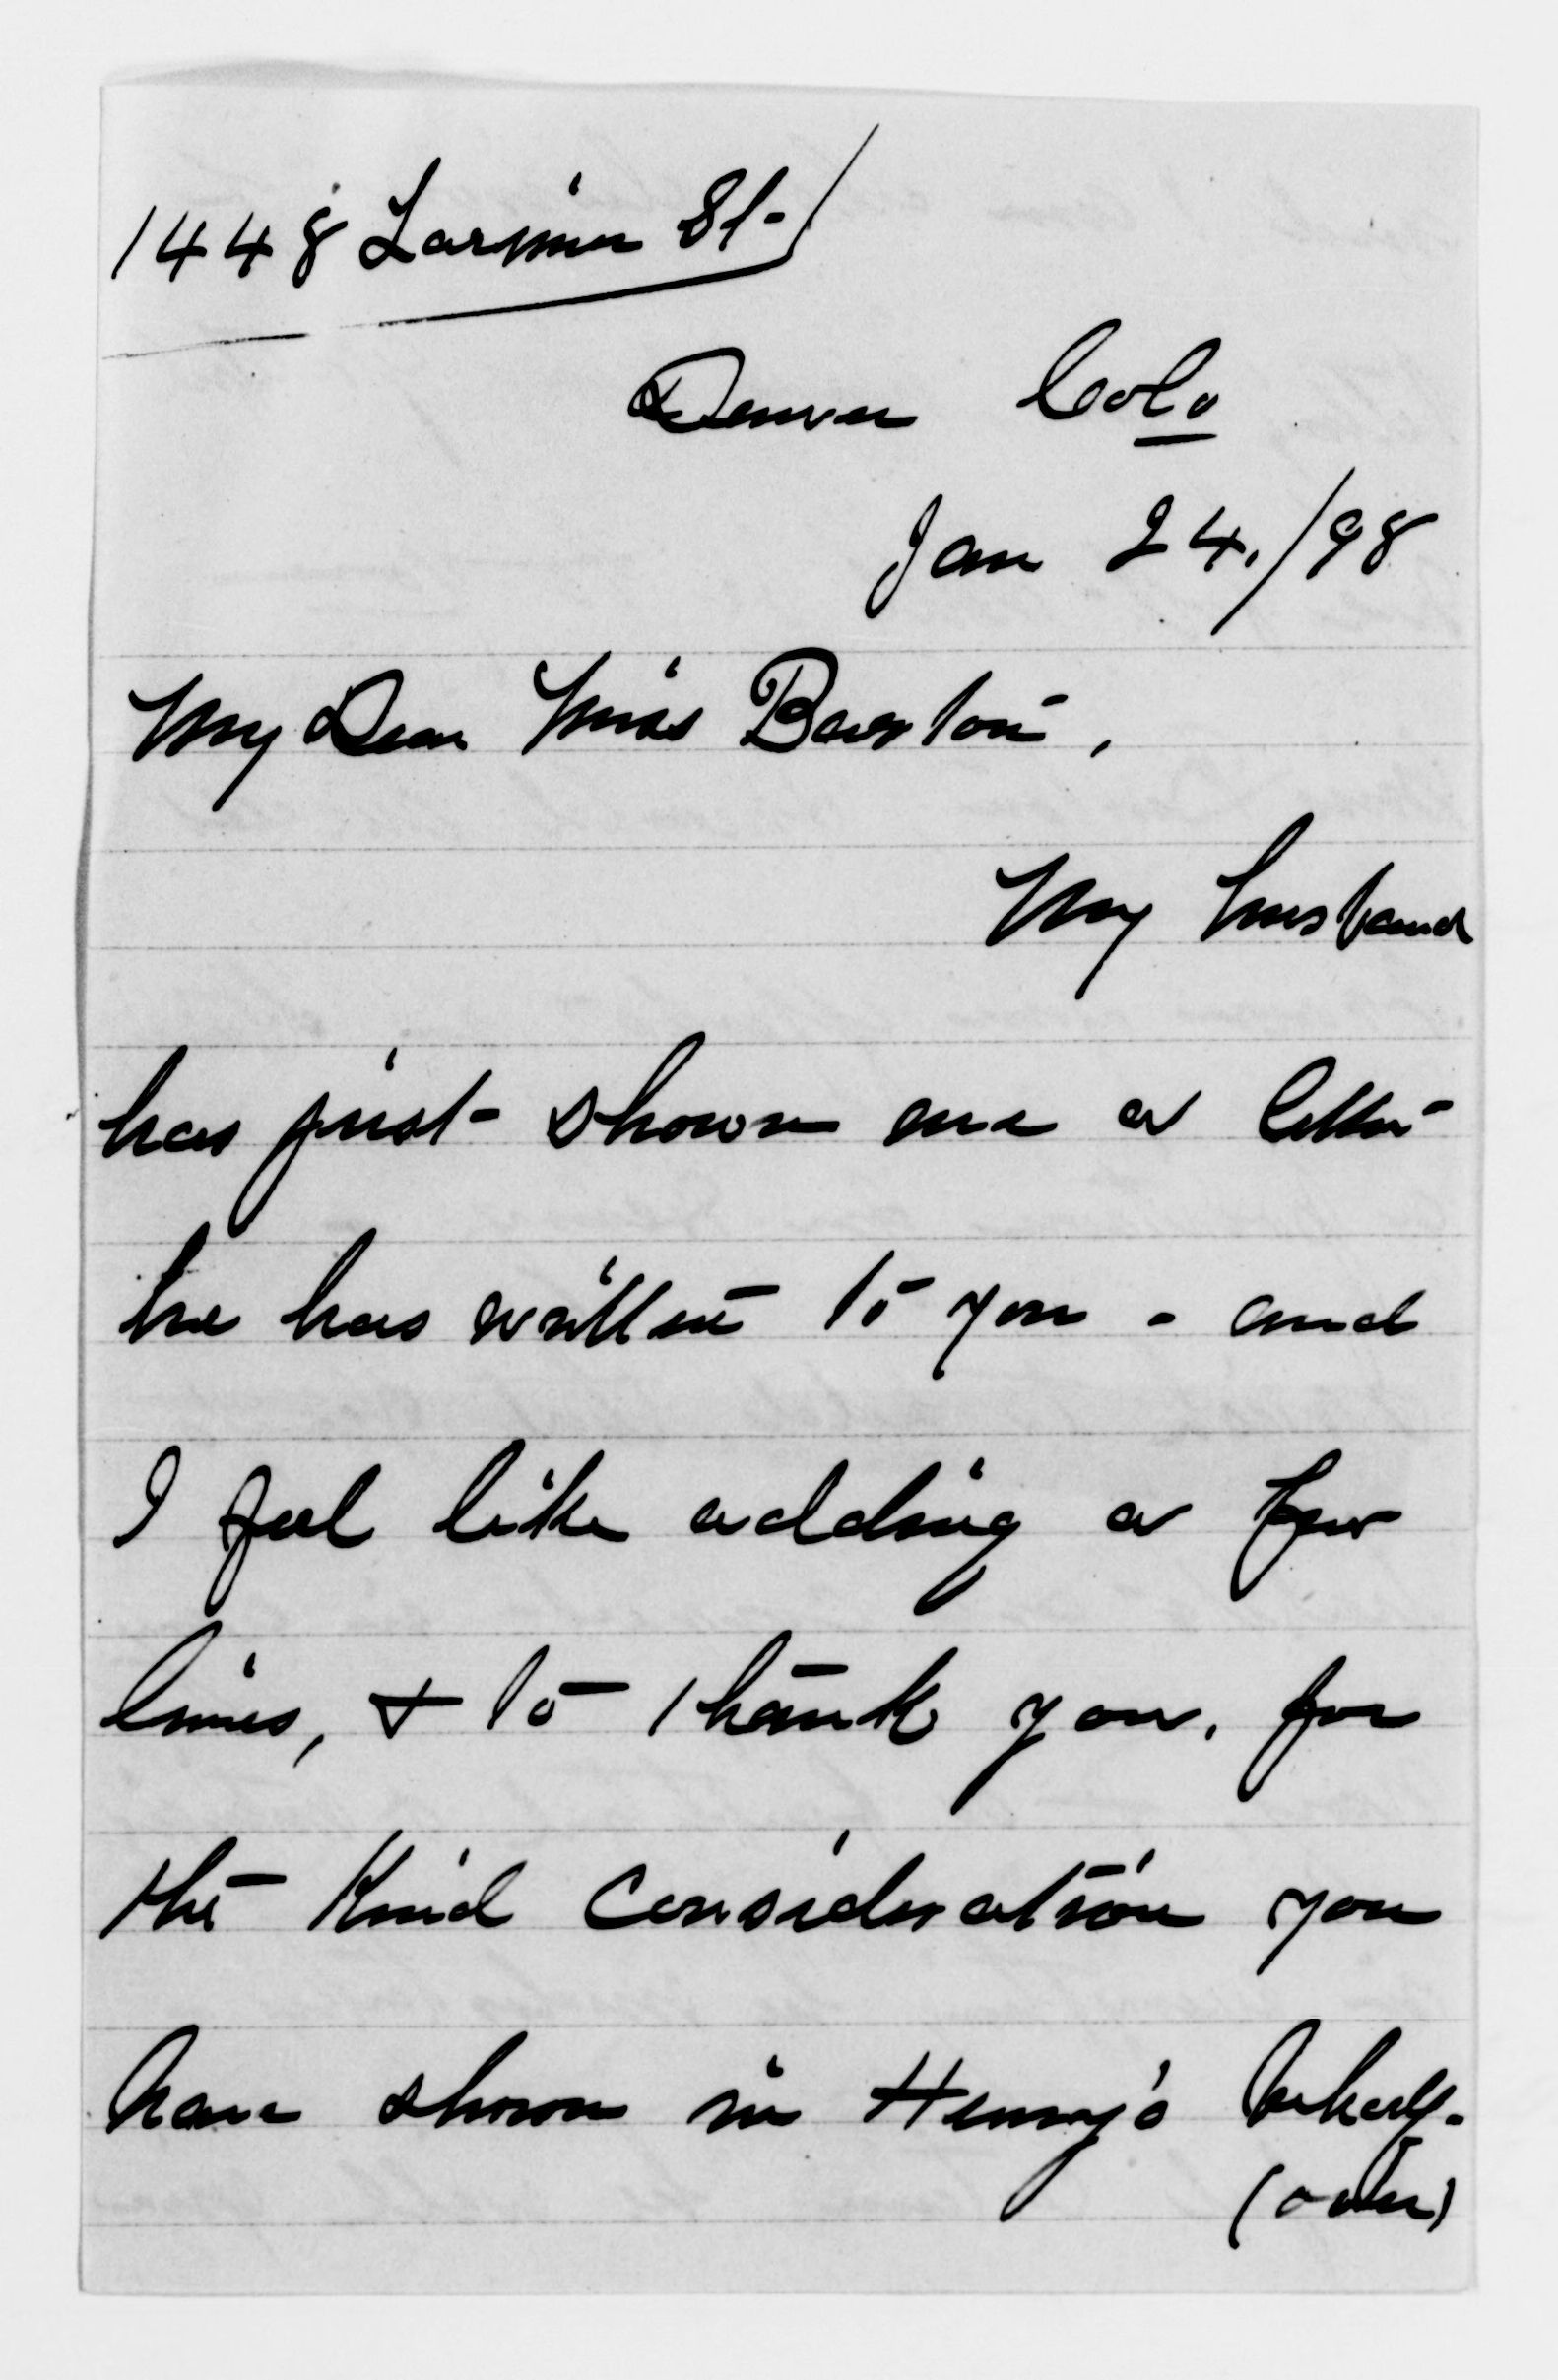 1448 Larimer St-
Denver Colo
Jan 24./98
My Dear Miss Barton,
My husband
has just shown me a letter
he has written to you - and
I feel like adding a few
lines, + to thank you, for
the Kind Consideration you
have shown in Henry's behalf.
(over)